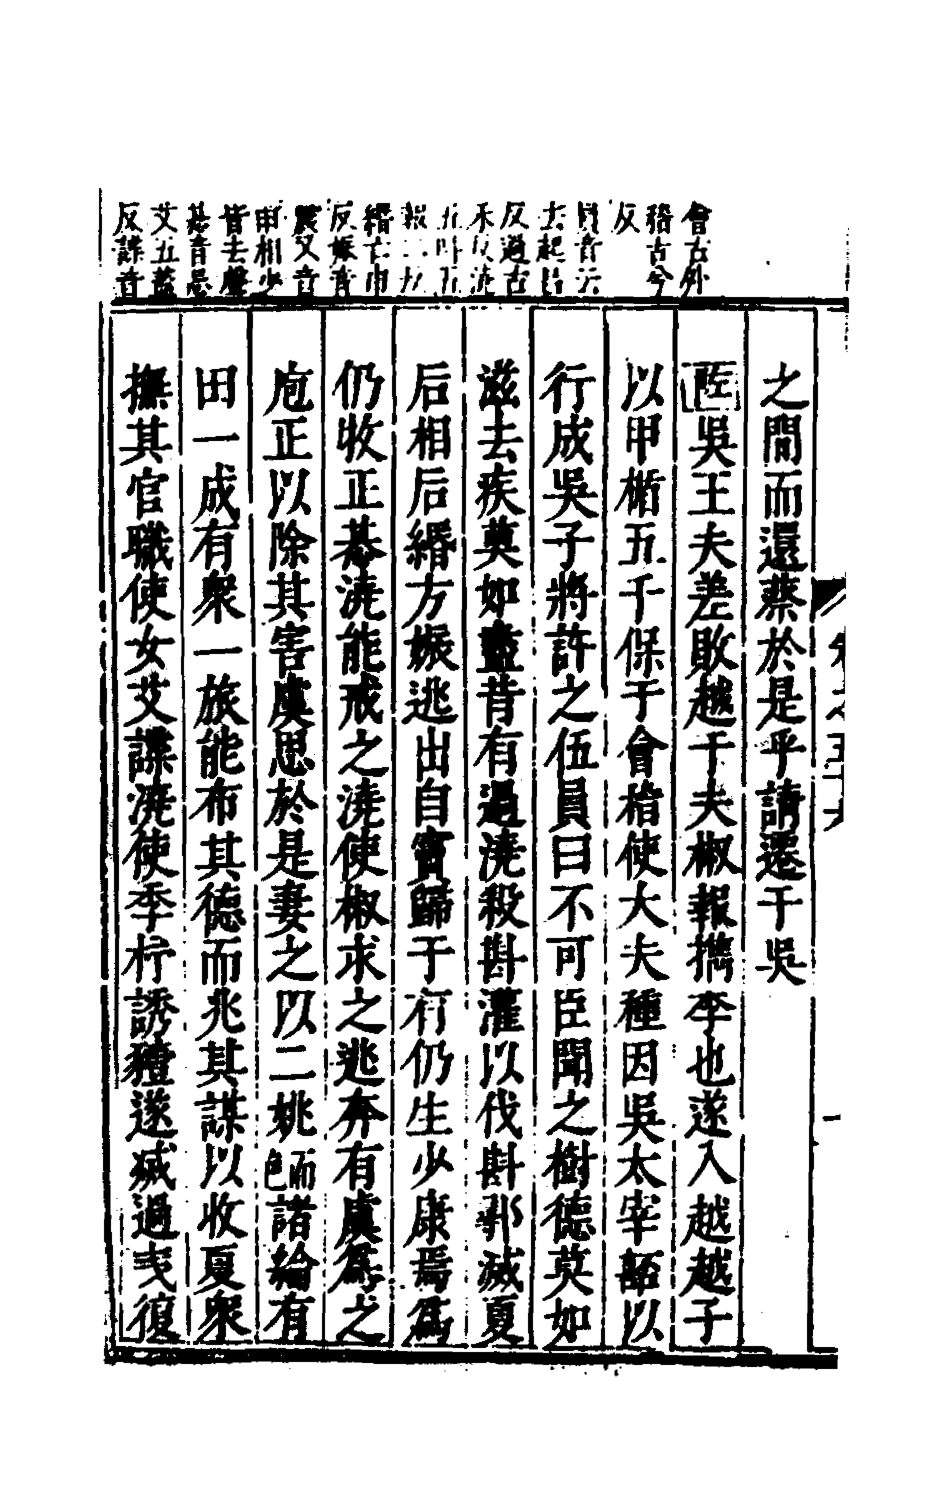 會古外
稽古兮
反
員音云
去起呂
反過古
禾反澆
五叫五
報二
緡亡巾
反娠音
震又音
申相少
皆去聲
惎音忌
艾五蓋
反諜音
卷之五十六
一
之間而還蔡於是乎請遷于吳
左吳王夫差敗越于夫椒報檇李也遂入越越子
以甲楯五千保于會稽使大夫種因吳太宰嚭以
行成吳子將許之伍員曰不可臣聞之樹德莫如
滋去疾莫如盡昔有過澆殺斟灌以伐斟鄩滅夏
后相后緡方娠逃出自竇歸于有仍生少康焉爲
仍牧正惎澆能戒之澆使椒求之逃奔有虞爲之
庖正以除其害虞思於是妻之以二姚而邑諸綸有
田一成有衆一旅能布其德而兆其謀以收夏衆
撫其官職使女艾諜澆使季杼誘豷遂滅過戈復